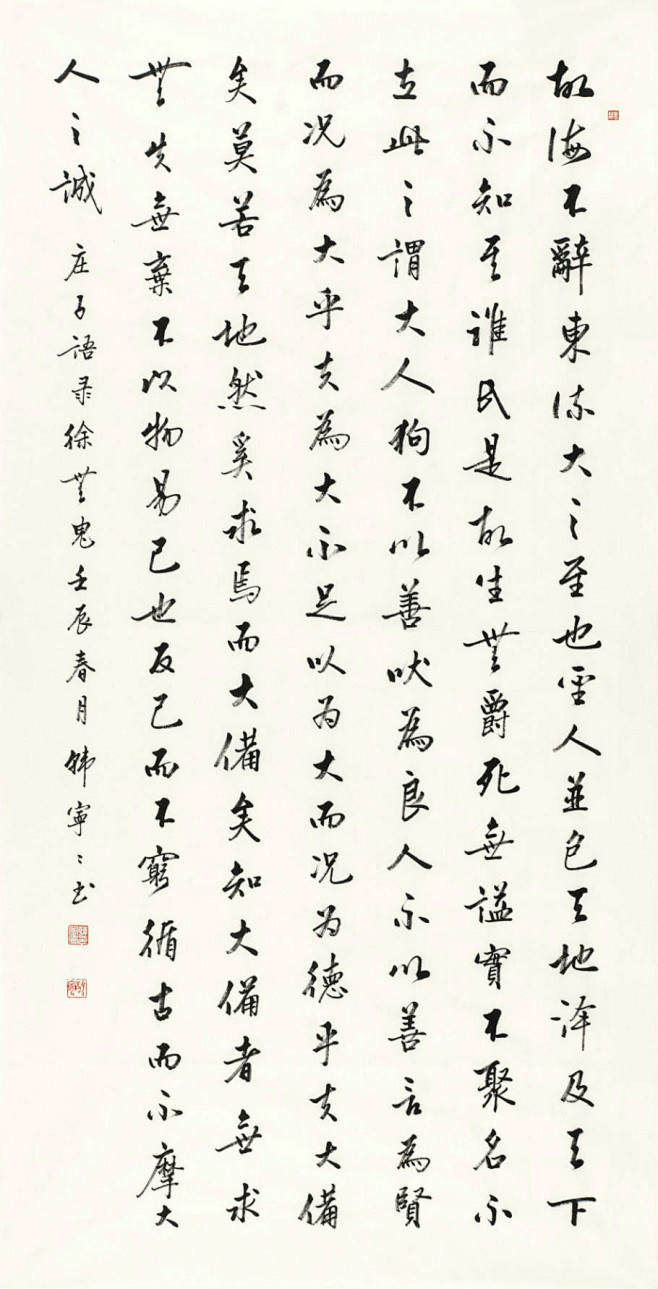 故海不辭東流大之至也聖人並包天地泽及天下
而不知其誰氏是故生無爵死無謚實不聚名不
立此之謂大人狗不以善吠為良人不以善言為賢
而况為大乎夫為大不足以为大而况为德乎夫大備
矣莫若天地然奚求焉而大備矣知大備者無求
無失無棄不以物易己也反己而不窮循古而不摩大
人之誠 庄子語录徐無鬼壬辰春月韩寧〻书